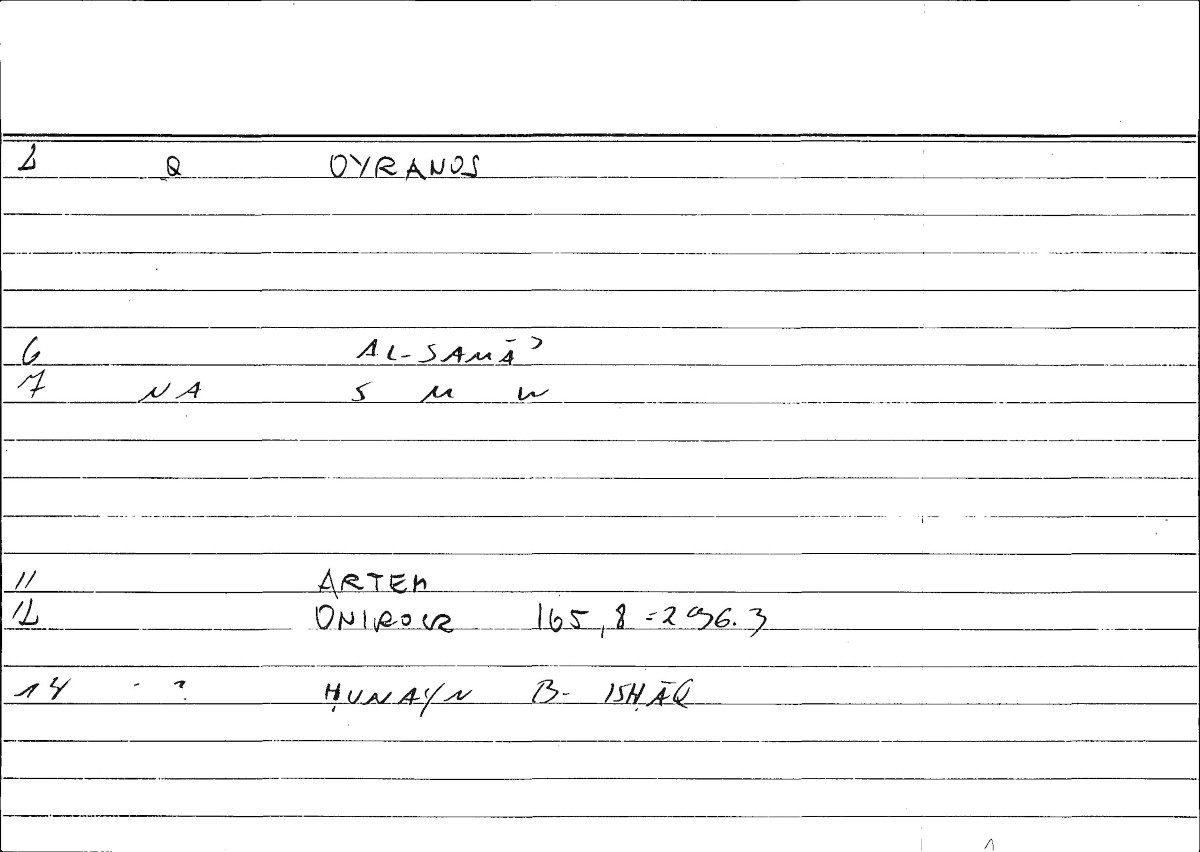 1 Q OYRANOS
6 AL-SAMĀʾ
7 NA S M W
11 ARTEM
12 ONIROCR 165,8=296.3
14 ? ḤUNAYN B- ISḤĀQ